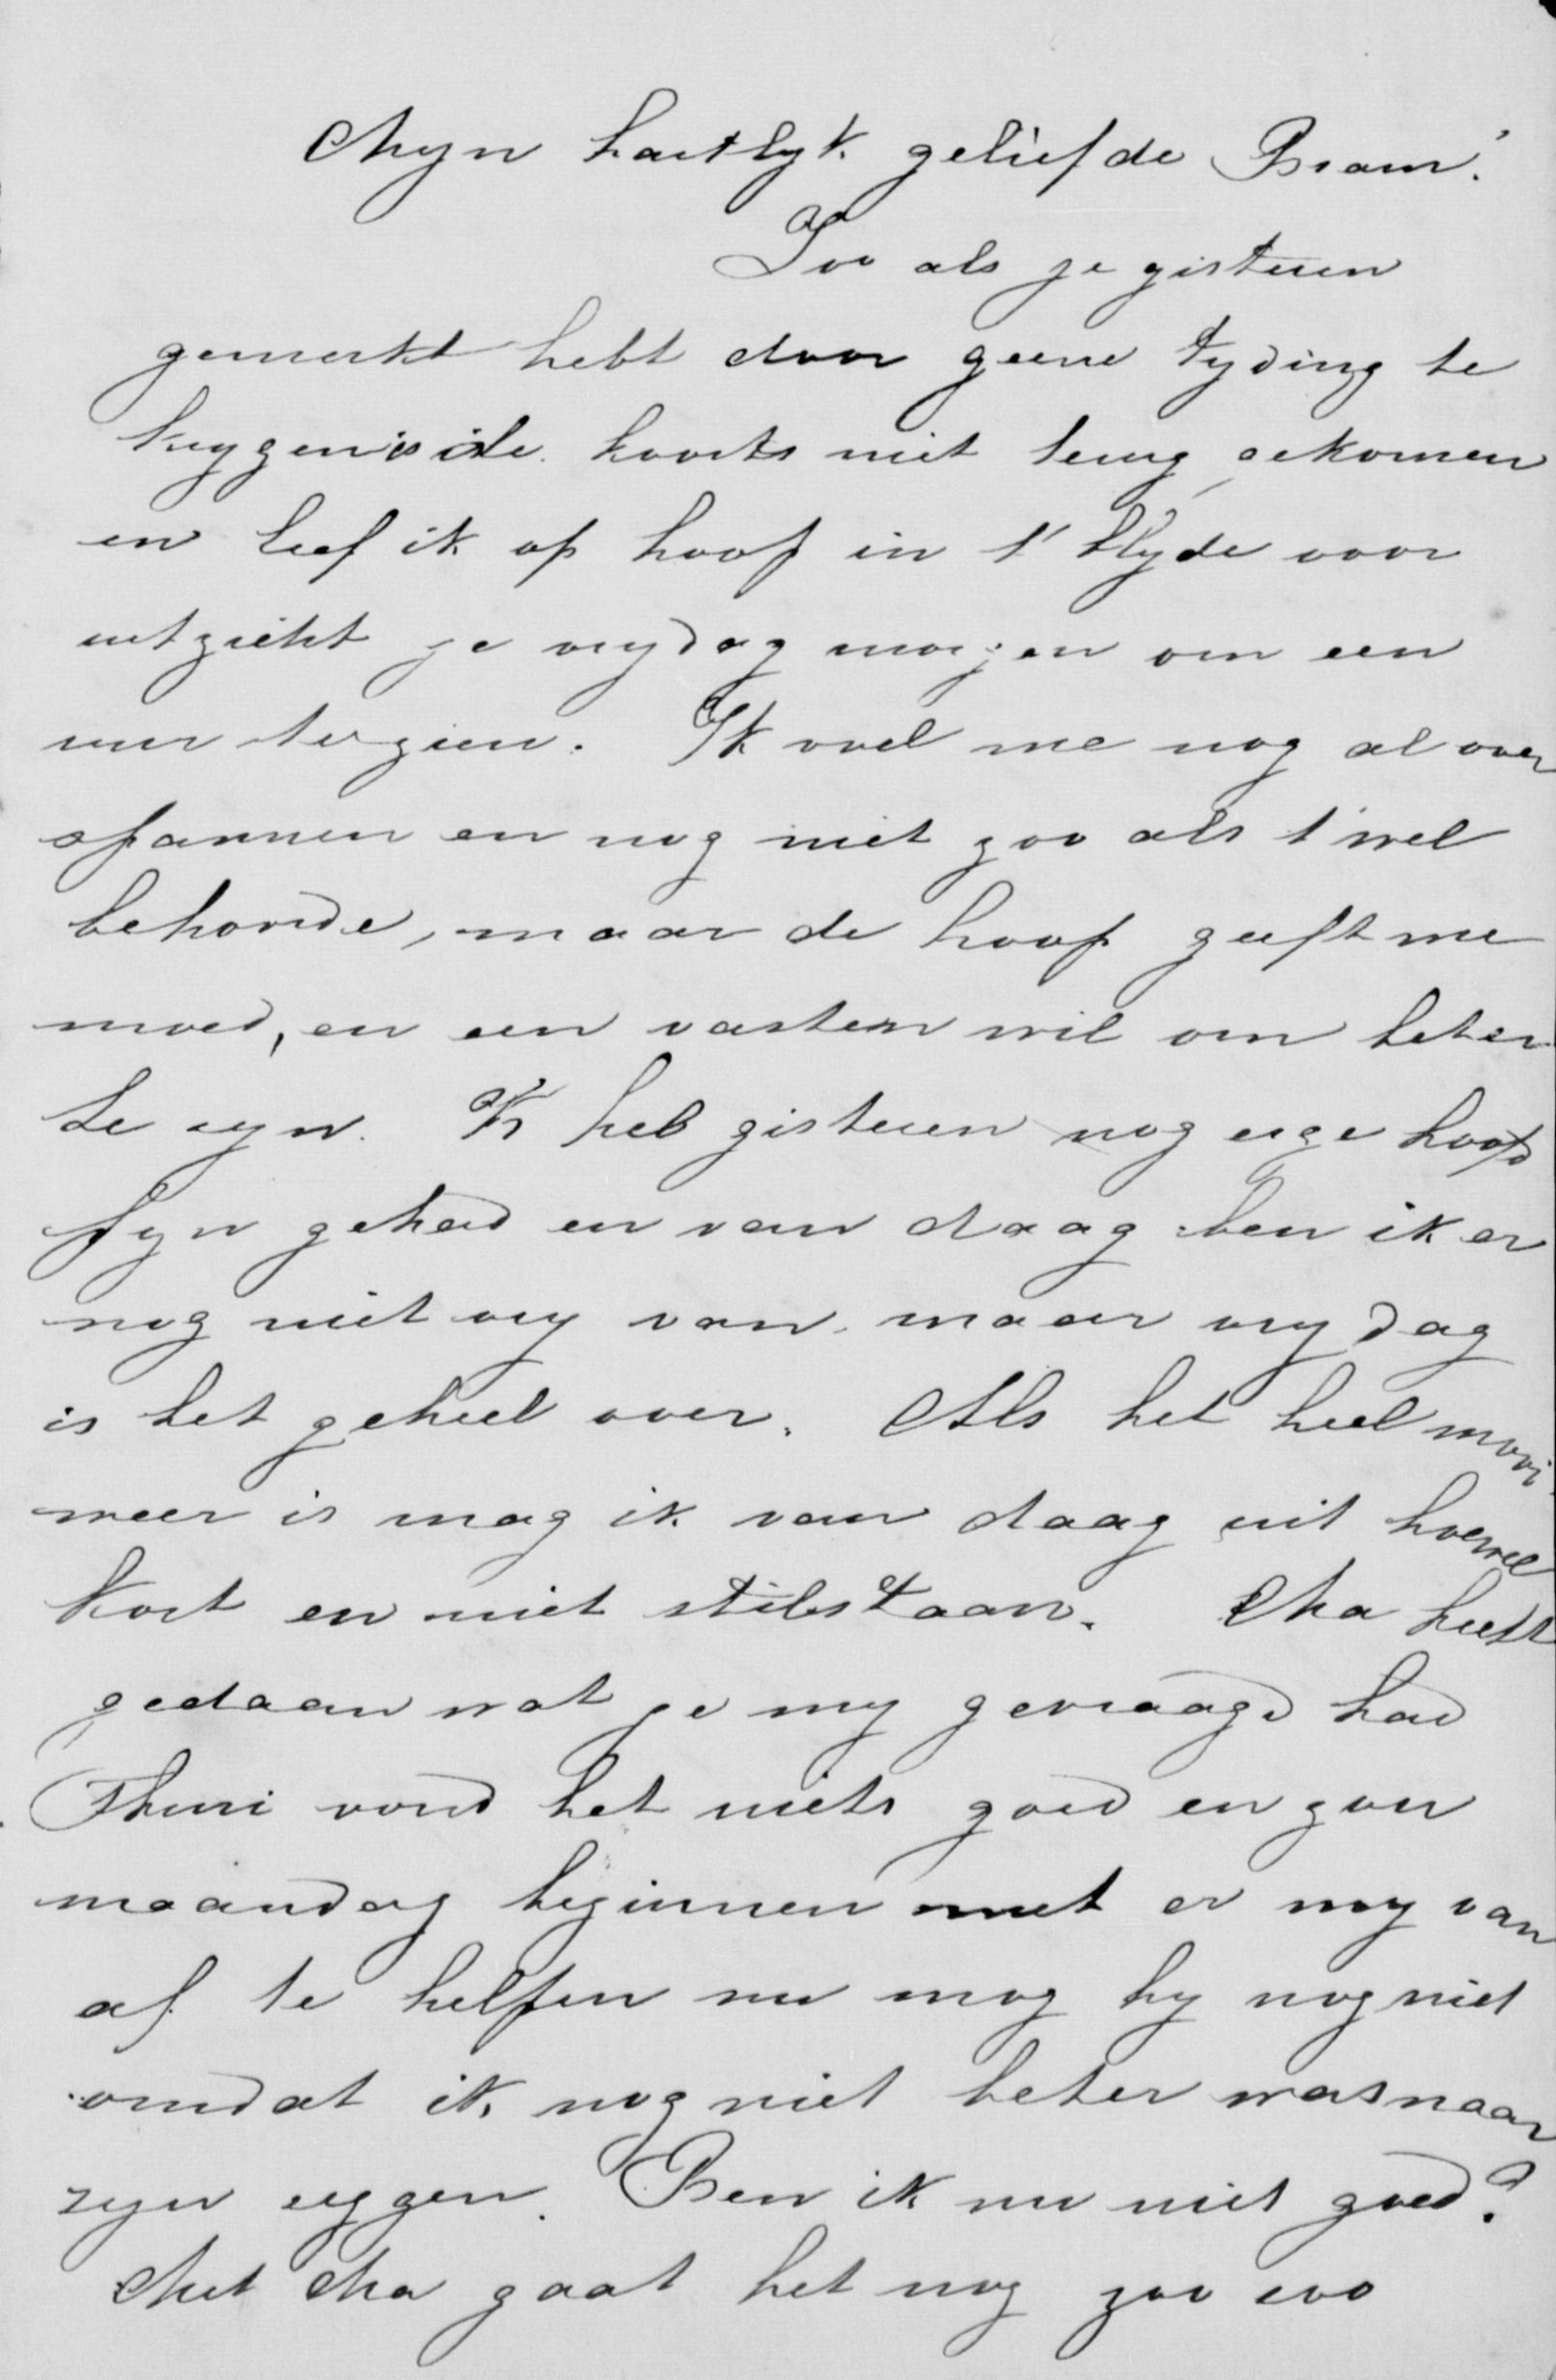 Myn hartlyk geliefde Bram!
Zoo als je gisteren
gemerkt hebt door geene tyding te
krygen is de koorts niet terug gekomen
en leef ik op hoop in t' blyde voor
uitzicht je vrydag morgen om een
uur te zien. Ik voel me nog al over
spannen en nog niet zoo als t' wel
behoorde, maar de hoop geeft me
moed, en een vasten wil om beter
te zyn. Ik heb gisteren nog erge hoofd
pyn gehad en van daag ben ik er
nog niet vry van, maar vrydag
is het geheel over. Als het heel mooi
weer is mag ik van daag uit hoewel
kort en niet stilstaan. Ma heeft
gedaan wat je my gevraagd had
Thuri vond het niets goed en zou
maandag beginnen met er my van
af te helpen nu mag hy nog niet
omdat ik nog niet beter was naar
zyn zeggen. Ben ik nu niet goed?
Met Ma gaat het nog zoo zoo